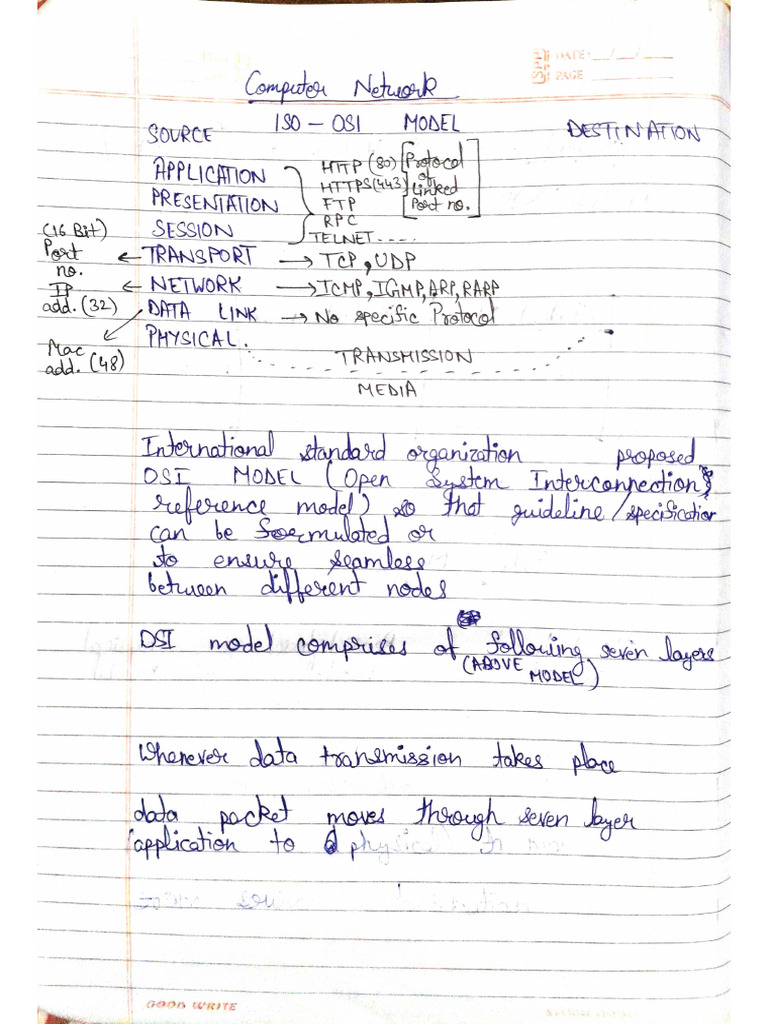 DATE: __/__/__
PAGE
Computer Network
ISO - OSI MODEL
SOURCE DESTINATION
APPLICATION HTTP (80) [Protocol
PRESENTATION HTTPS (443) or Linked
FTP Port no.]
SESSION RPC
TELNET.....
(16 Bit) Port no. ← TRANSPORT → TCP, UDP
IP add. (32) ← NETWORK → ICMP, IGMP, ARP, RARP
Mac add. (48) DATA LINK → No specific Protocol
PHYSICAL.
TRANSMISSION
MEDIA
International standard organization proposed
OSI MODEL (Open System Interconnection
reference model) so that guideline/specification
can be formulated or
to ensure seamless
between different nodes
OSI model comprises of following seven layers
(ABOVE MODEL)
Whenever data transmission takes place
data packet moves through seven layer
application to physical
GOOD WRITE